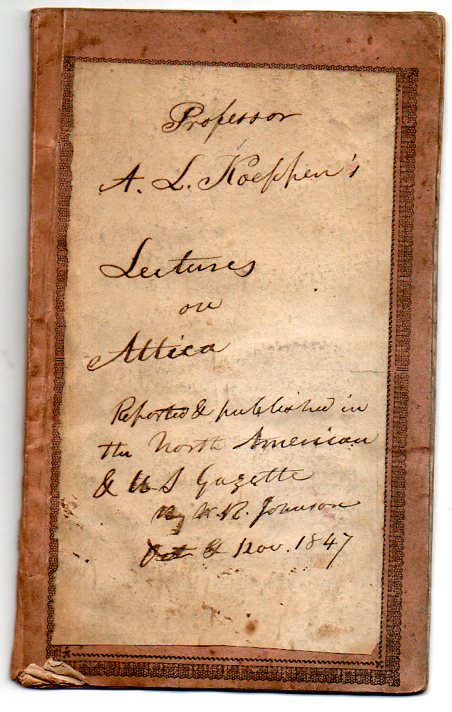 Professor
A. L. Koeppen's
Lectures
on
Attica
Reported & published in
the North American
& U S Gazette
By W. R. Johnson
Oct & Nov. 1847